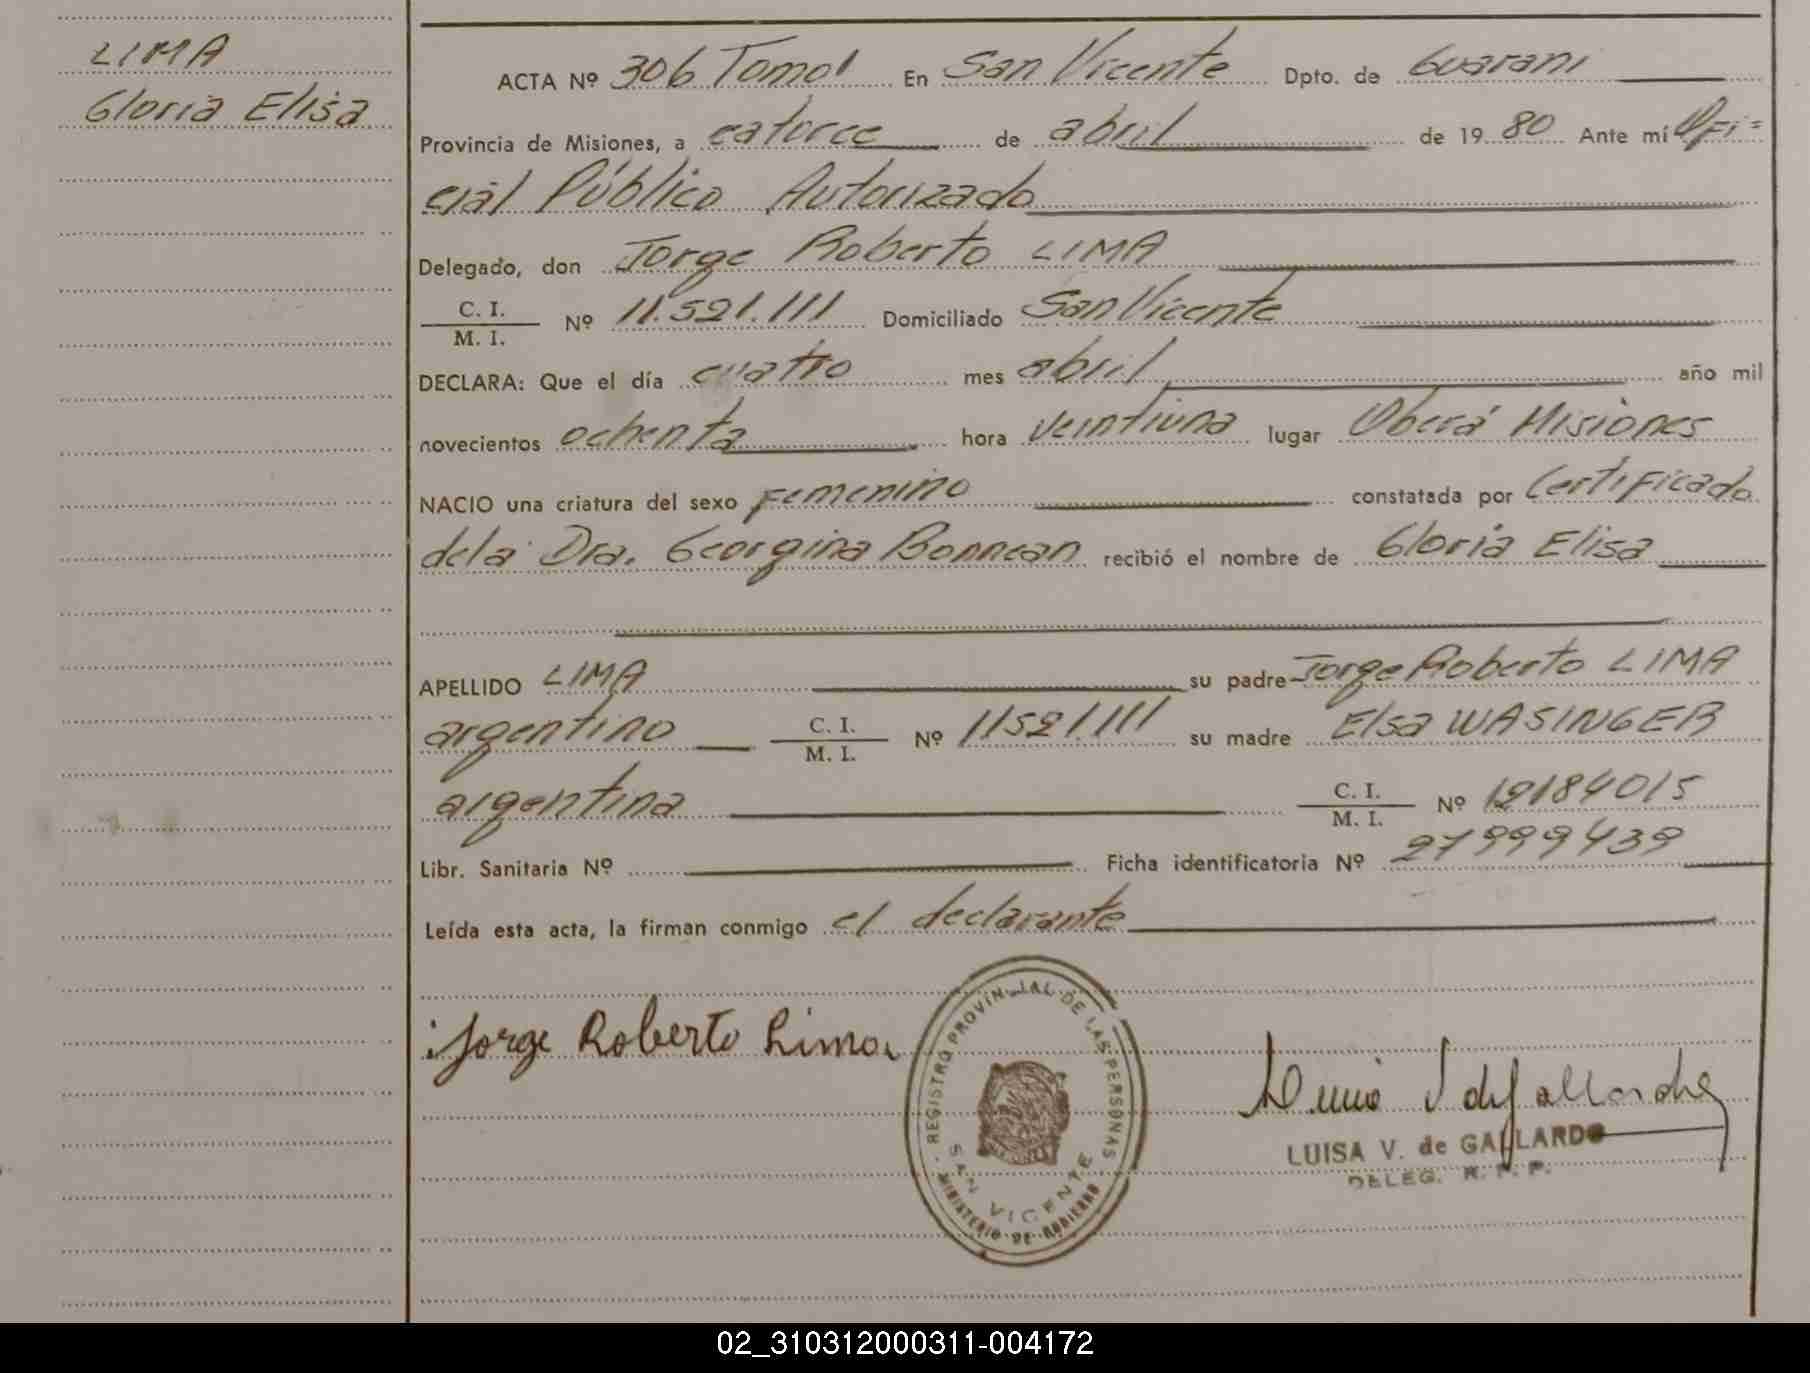 LIMA
Gloria Elisa
ACTA Nº 306 Tomo I En San Vicente Dpto. de Guarani
Provincia de Misiones, a catorce de abril de 1980 Ante mí Ofi=
cial Público Autorizado
Delegado, don Jorge Roberto LIMA
C. I.
M. I. Nº 11.521.111 Domiciliado San Vicente
DECLARA: Que el día cuatro mes abril año mil
novecientos ochenta hora veintiuna lugar Oberá Misiones
NACIO una criatura del sexo Femenino constatada por Certificado
de la Dra. Georgina Bonnean recibió el nombre de Gloria Elisa
APELLIDO LIMA su padre Jorge Roberto LIMA
argentino C. I.
M. I. Nº 11521.111 su madre Elsa WASINGER
argentina C. I.
M. I. Nº 12184015
Libr. Sanitaria Nº Ficha identificatoria Nº 27999439
Leída esta acta, la firman conmigo el declarante
Jorge Roberto Lima
REGISTRO PROVINCIAL DE LAS PERSONAS
SAN VICENTE
MINISTERIO DE GOBIERNO
LUISA V. de GALLARDO
DELEG. R. P. P.
02_310312000311-004172